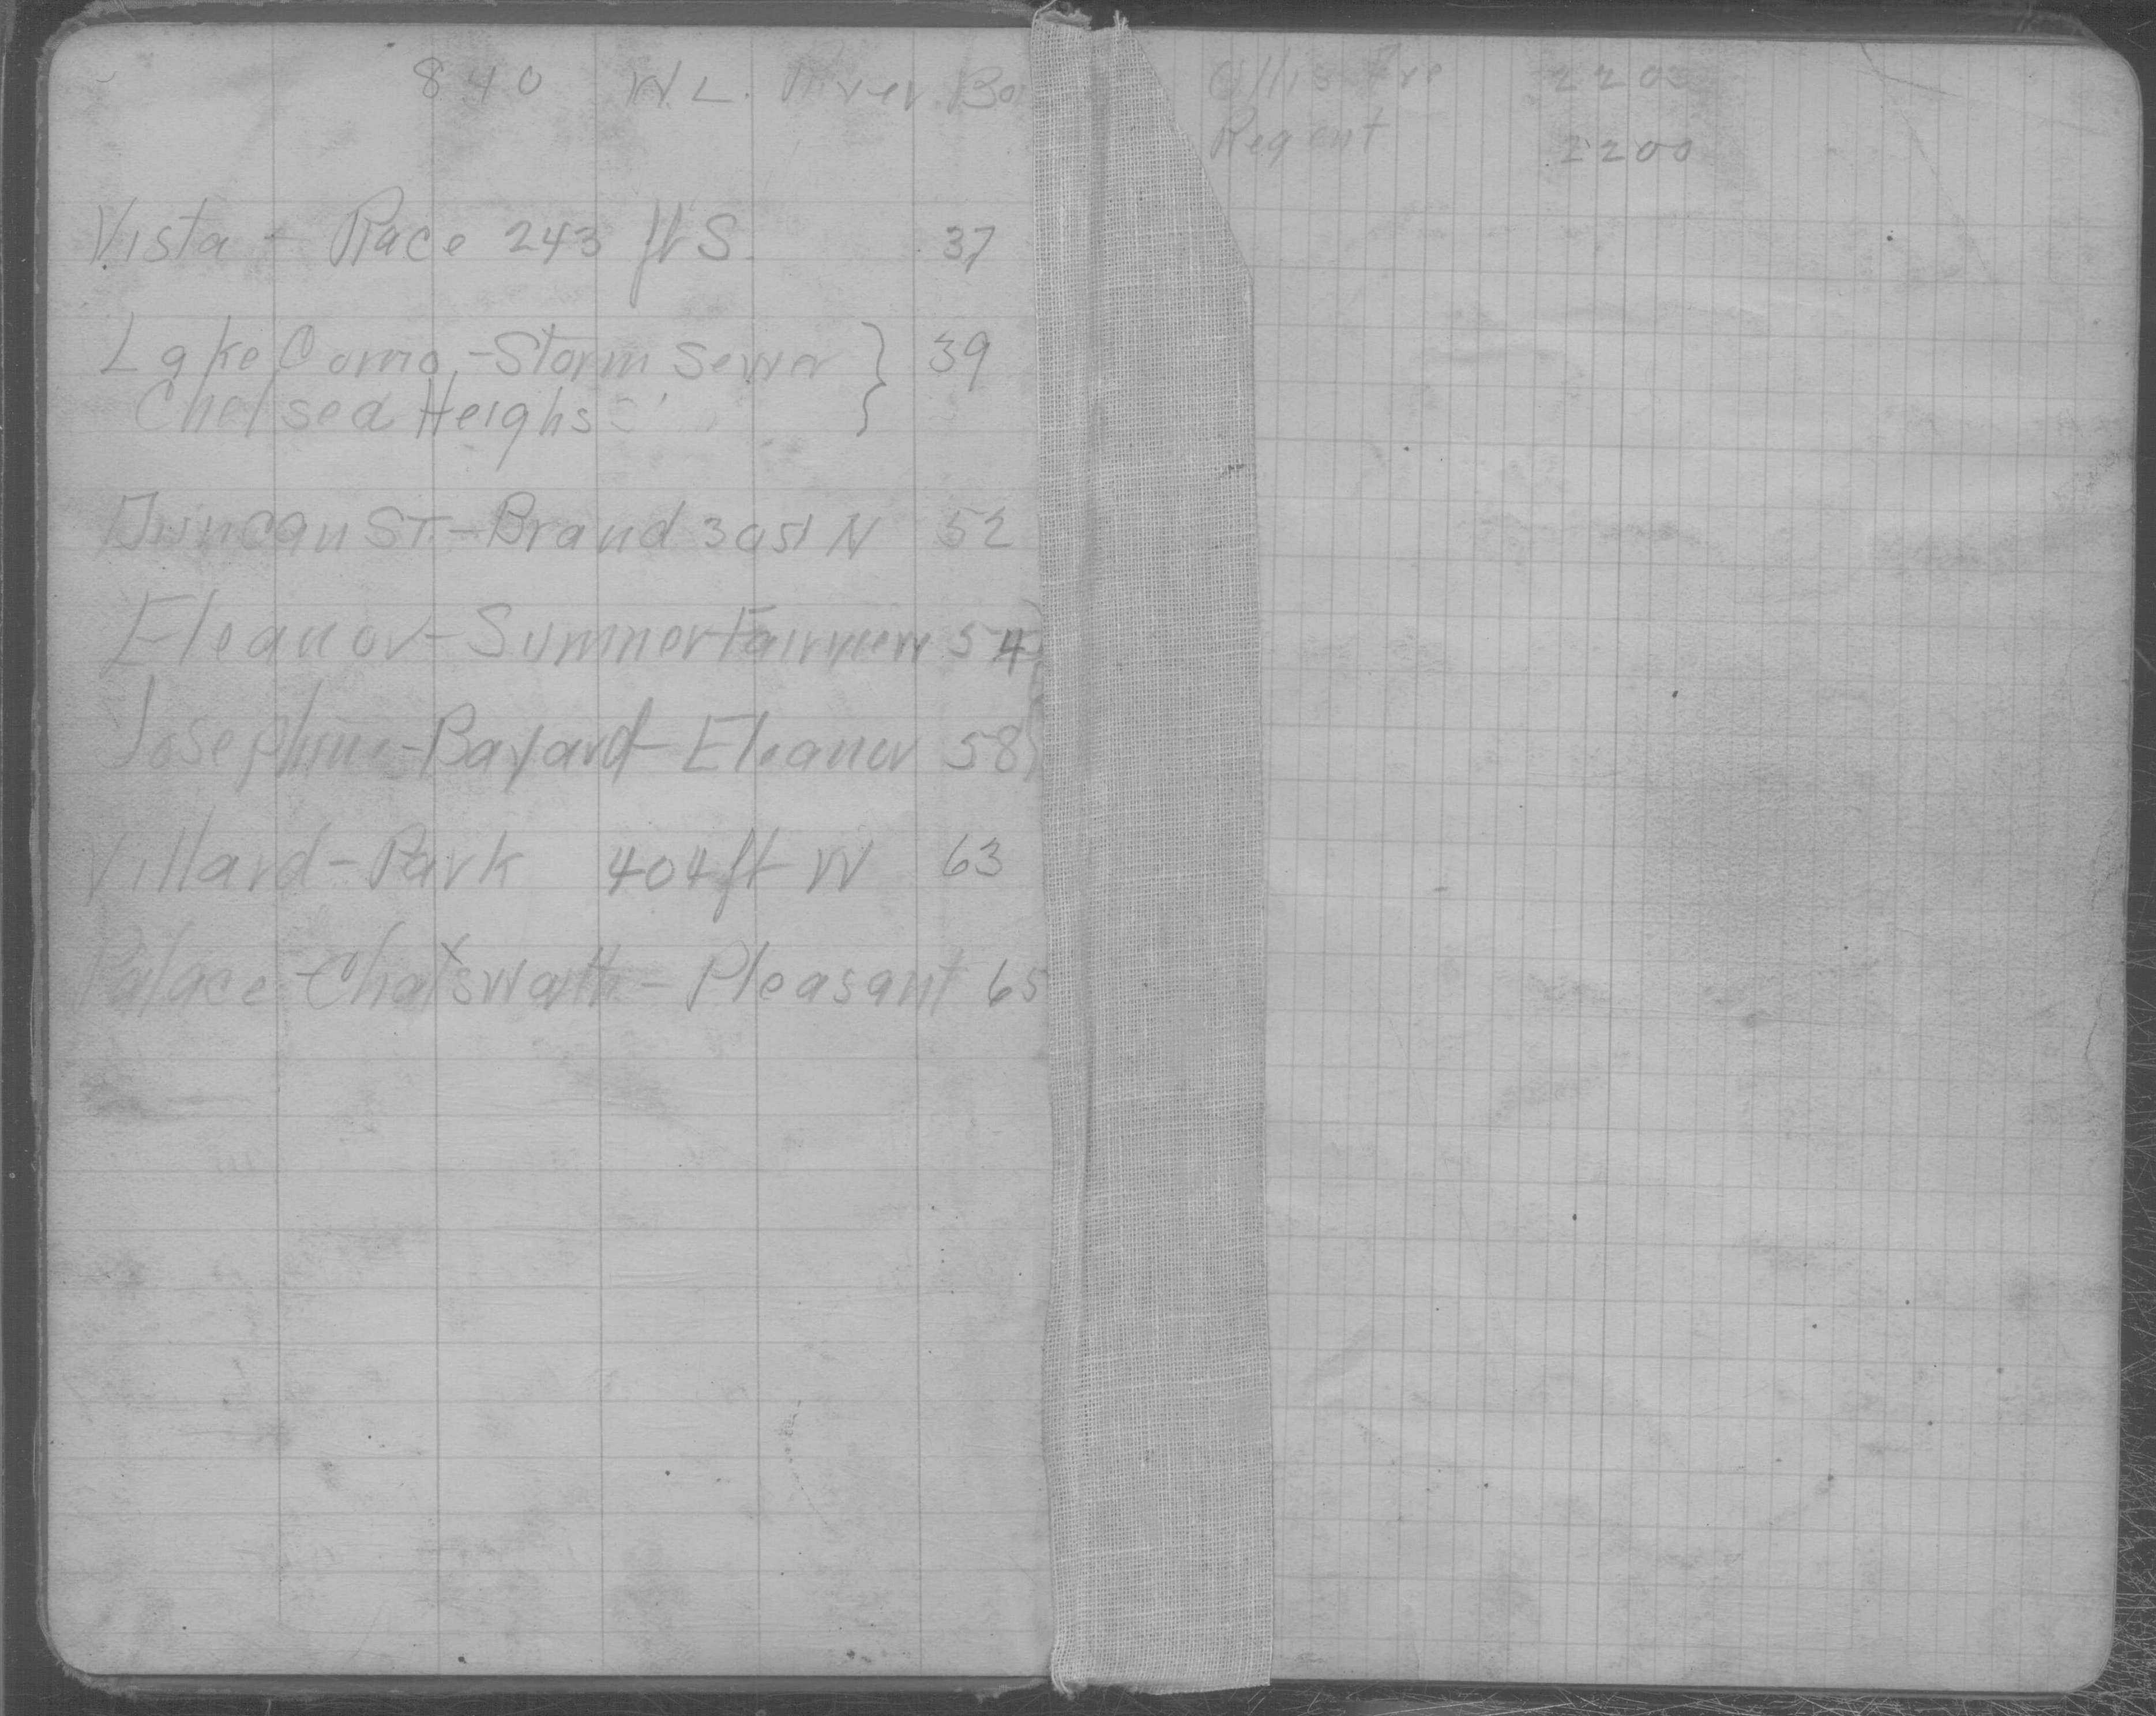 840 W.L. River Bo
Vista - Race 243 ft S. 37
Lake Como - Storm Sewer } 39
Chelsea Heighs
Duncan ST. - Brand 305' N 52
Eleanor - Sumner Fairview 54
Josephine - Bayard - Eleanor 58
Villard - Park 404 ft W 63
Palace - Chatsworth - Pleasant 65
Ave 2203
Regent 2200